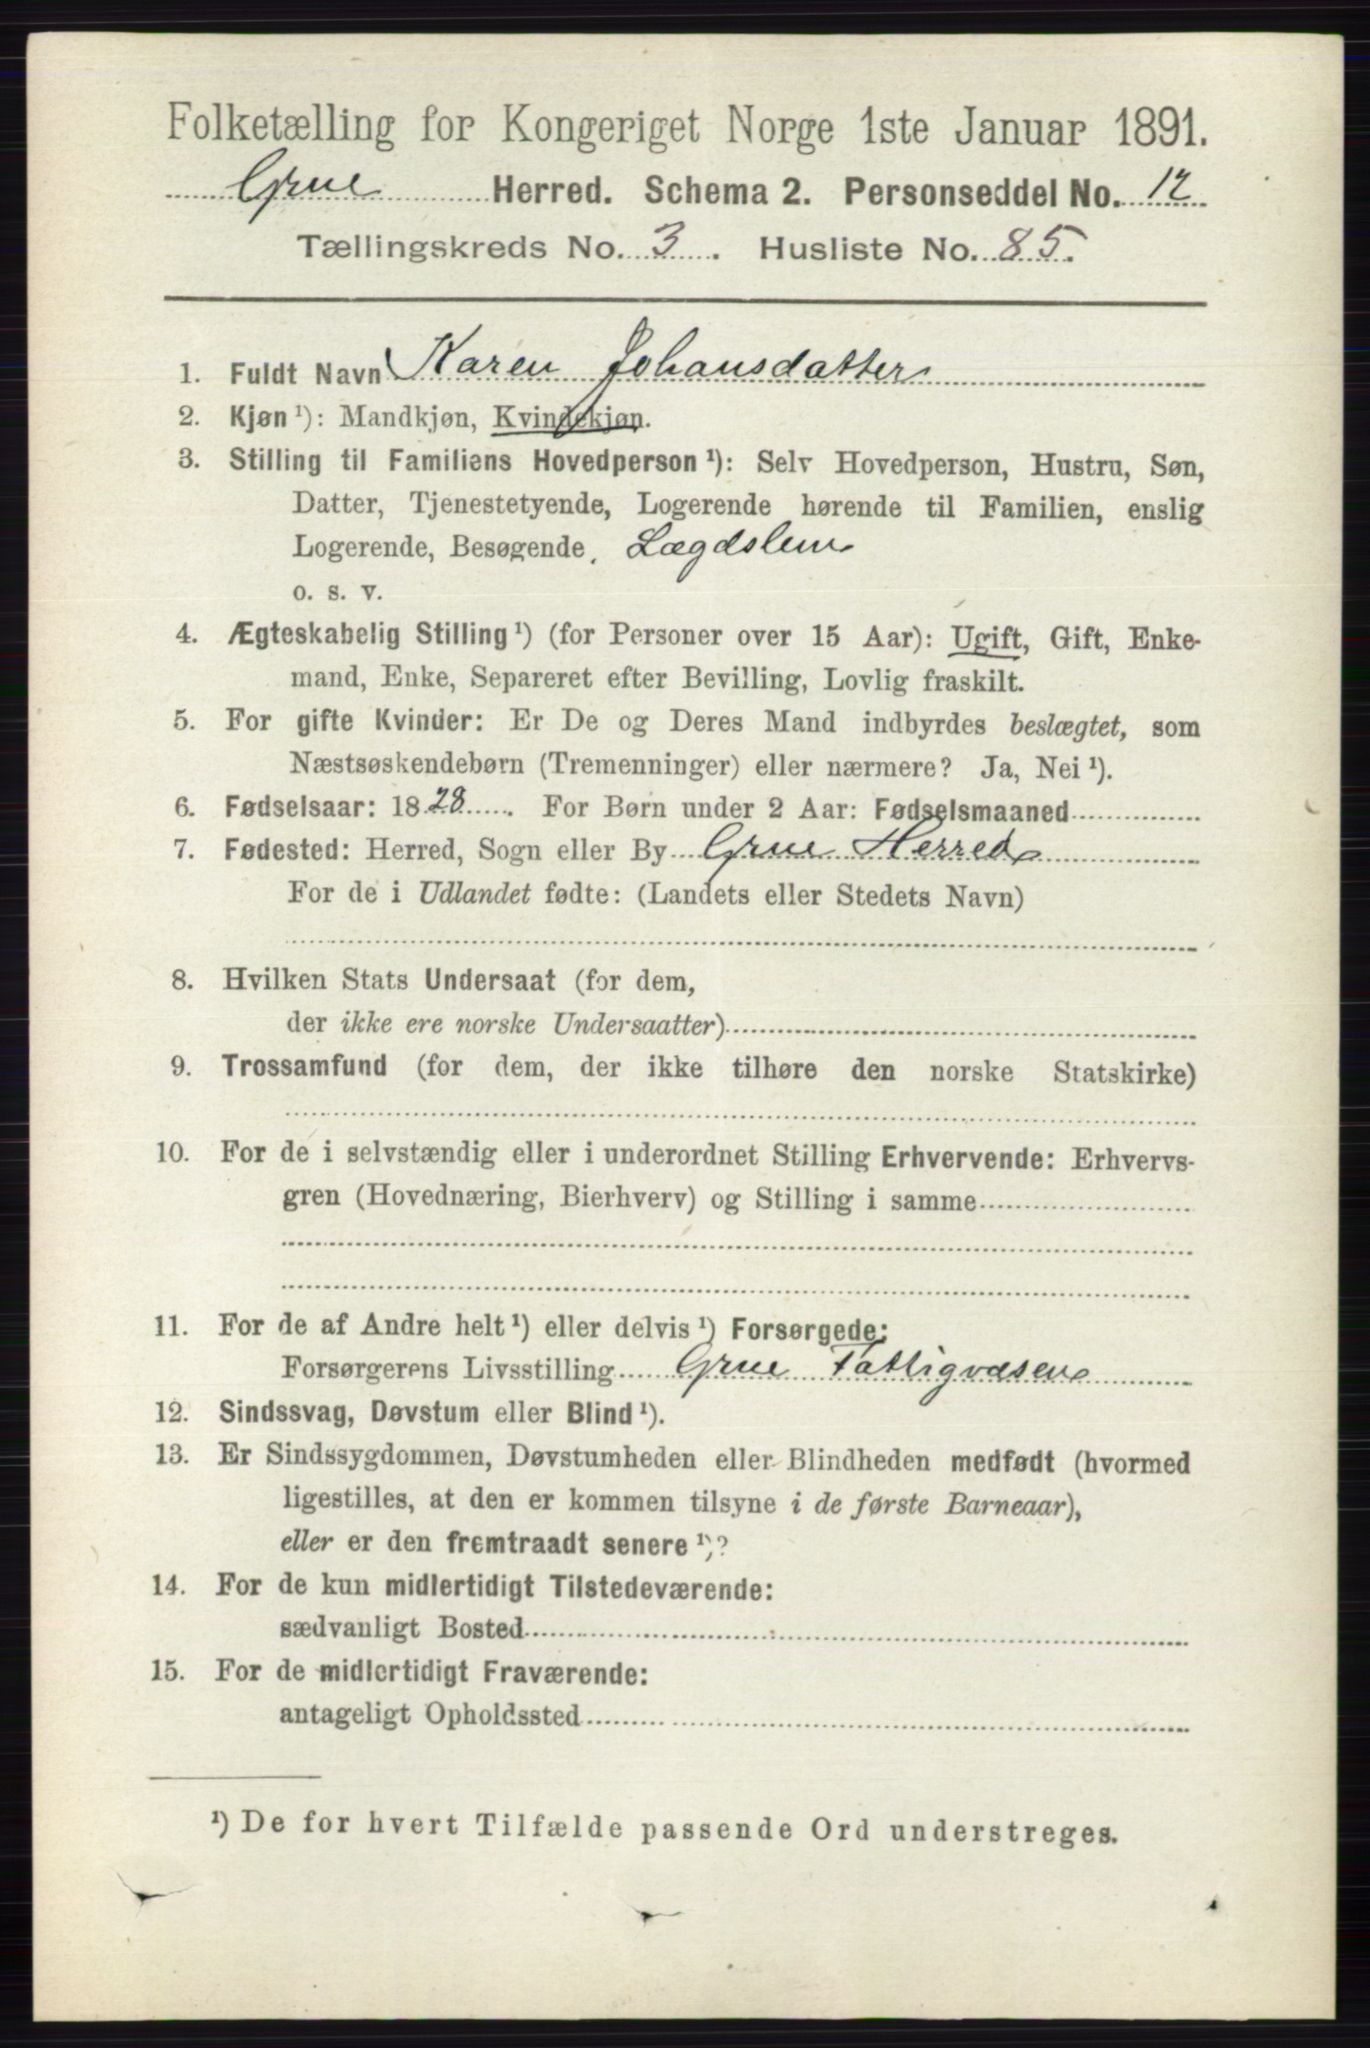 Folketælling for Kongeriget Norge 1ste Januar 1891.
Grue Herred. Schema 2. Personseddel No. 12
Tællingskreds No. 3. Husliste No. 85.
1. Fuldt Navn Karen Johansdatter
2. Kjøn ¹): Mandkjøn, Kvindekjøn.
3. Stilling til Familiens Hovedperson ¹): Selv Hovedperson, Hustru, Søn,
Datter, Tjenestetyende, Logerende hørende til Familien, enslig
Logerende, Besøgende, Lægdslem
o. s. v.
4. Ægteskabelig Stilling ¹) (for Personer over 15 Aar): Ugift, Gift, Enke-
mand, Enke, Separeret efter Bevilling, Lovlig fraskilt.
5. For gifte Kvinder: Er De og Deres Mand indbyrdes beslægtet, som
Næstsøskendebørn (Tremenninger) eller nærmere? Ja, Nei ¹).
6. Fødselsaar: 1828. For Børn under 2 Aar: Fødselsmaaned
7. Fødested: Herred, Sogn eller By Grue Herred
For de i Udlandet fødte: (Landets eller Stedets Navn)
8. Hvilken Stats Undersaat (for dem,
der ikke ere norske Undersaatter)
9. Trossamfund (for dem, der ikke tilhøre den norske Statskirke)
10. For de i selvstændig eller i underordnet Stilling Erhvervende: Erhvervs-
gren (Hovednæring, Bierhverv) og Stilling i samme
11. For de af Andre helt ¹) eller delvis ¹) Forsørgede:
Forsørgerens Livsstilling Grue Fattigvæsen
12. Sindssvag, Døvstum eller Blind ¹).
13. Er Sindssygdommen, Døvstumheden eller Blindheden medfødt (hvormed
ligestilles, at den er kommen tilsyne i de første Barneaar),
eller er den fremtraadt senere ¹)?
14. For de kun midlertidigt Tilstedeværende:
sædvanligt Bosted
15. For de midlertidigt Fraværende:
antageligt Opholdssted
¹) De for hvert Tilfælde passende Ord understreges.